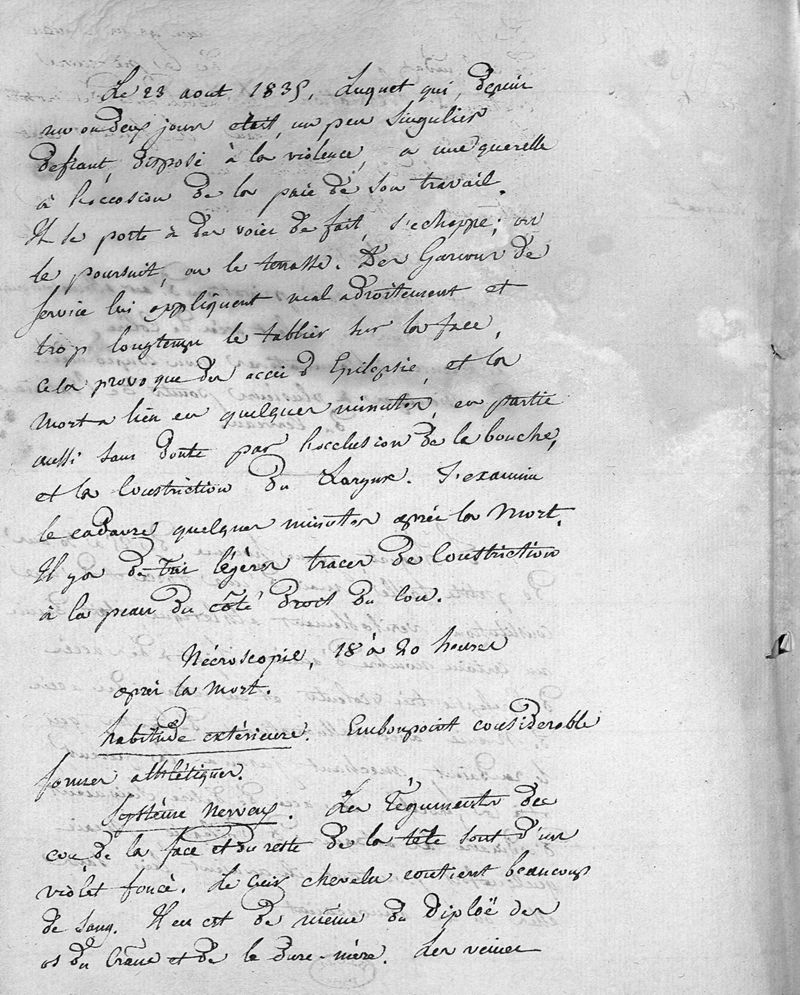 Le 23 aout 1835, Luquet qui, depuis
un ou deux jours etait, un peu singulier
defiant, disposé à la violence, a une querelle
à l'occasion de la paie de son travail.
Il se porte à des voies de fait, s'echappe; on
le poursuit, on le terrasse. Des Garcons de
service lui appliquent maladroitement et
trop longtemps le tablier sur la face,
cela provoque des accès d'Epilepsie, et la
mort a lieu en quelques minutes, en partie
aussi sans doute par l'occlusion de la bouche,
et la Constriction du Larynx. J'examine
le cadavre quelques minutes après la Mort.
Il y a de très légères traces de Constriction
à la peau du côté droit du cou.
Nécroscopie, 18 à 20 heures
après la Mort.
habitude extérieure. Embonpoint considerable
formes athlétiques.
Système Nerveux. Les Téguments du
cou de la face et du reste de la tête sont d'un
violet foncé. Le Cuir chevelu contient beaucoup
de sang. Il en est de même du Diploë des
os du Crâne et de la dure-mère. Les veines